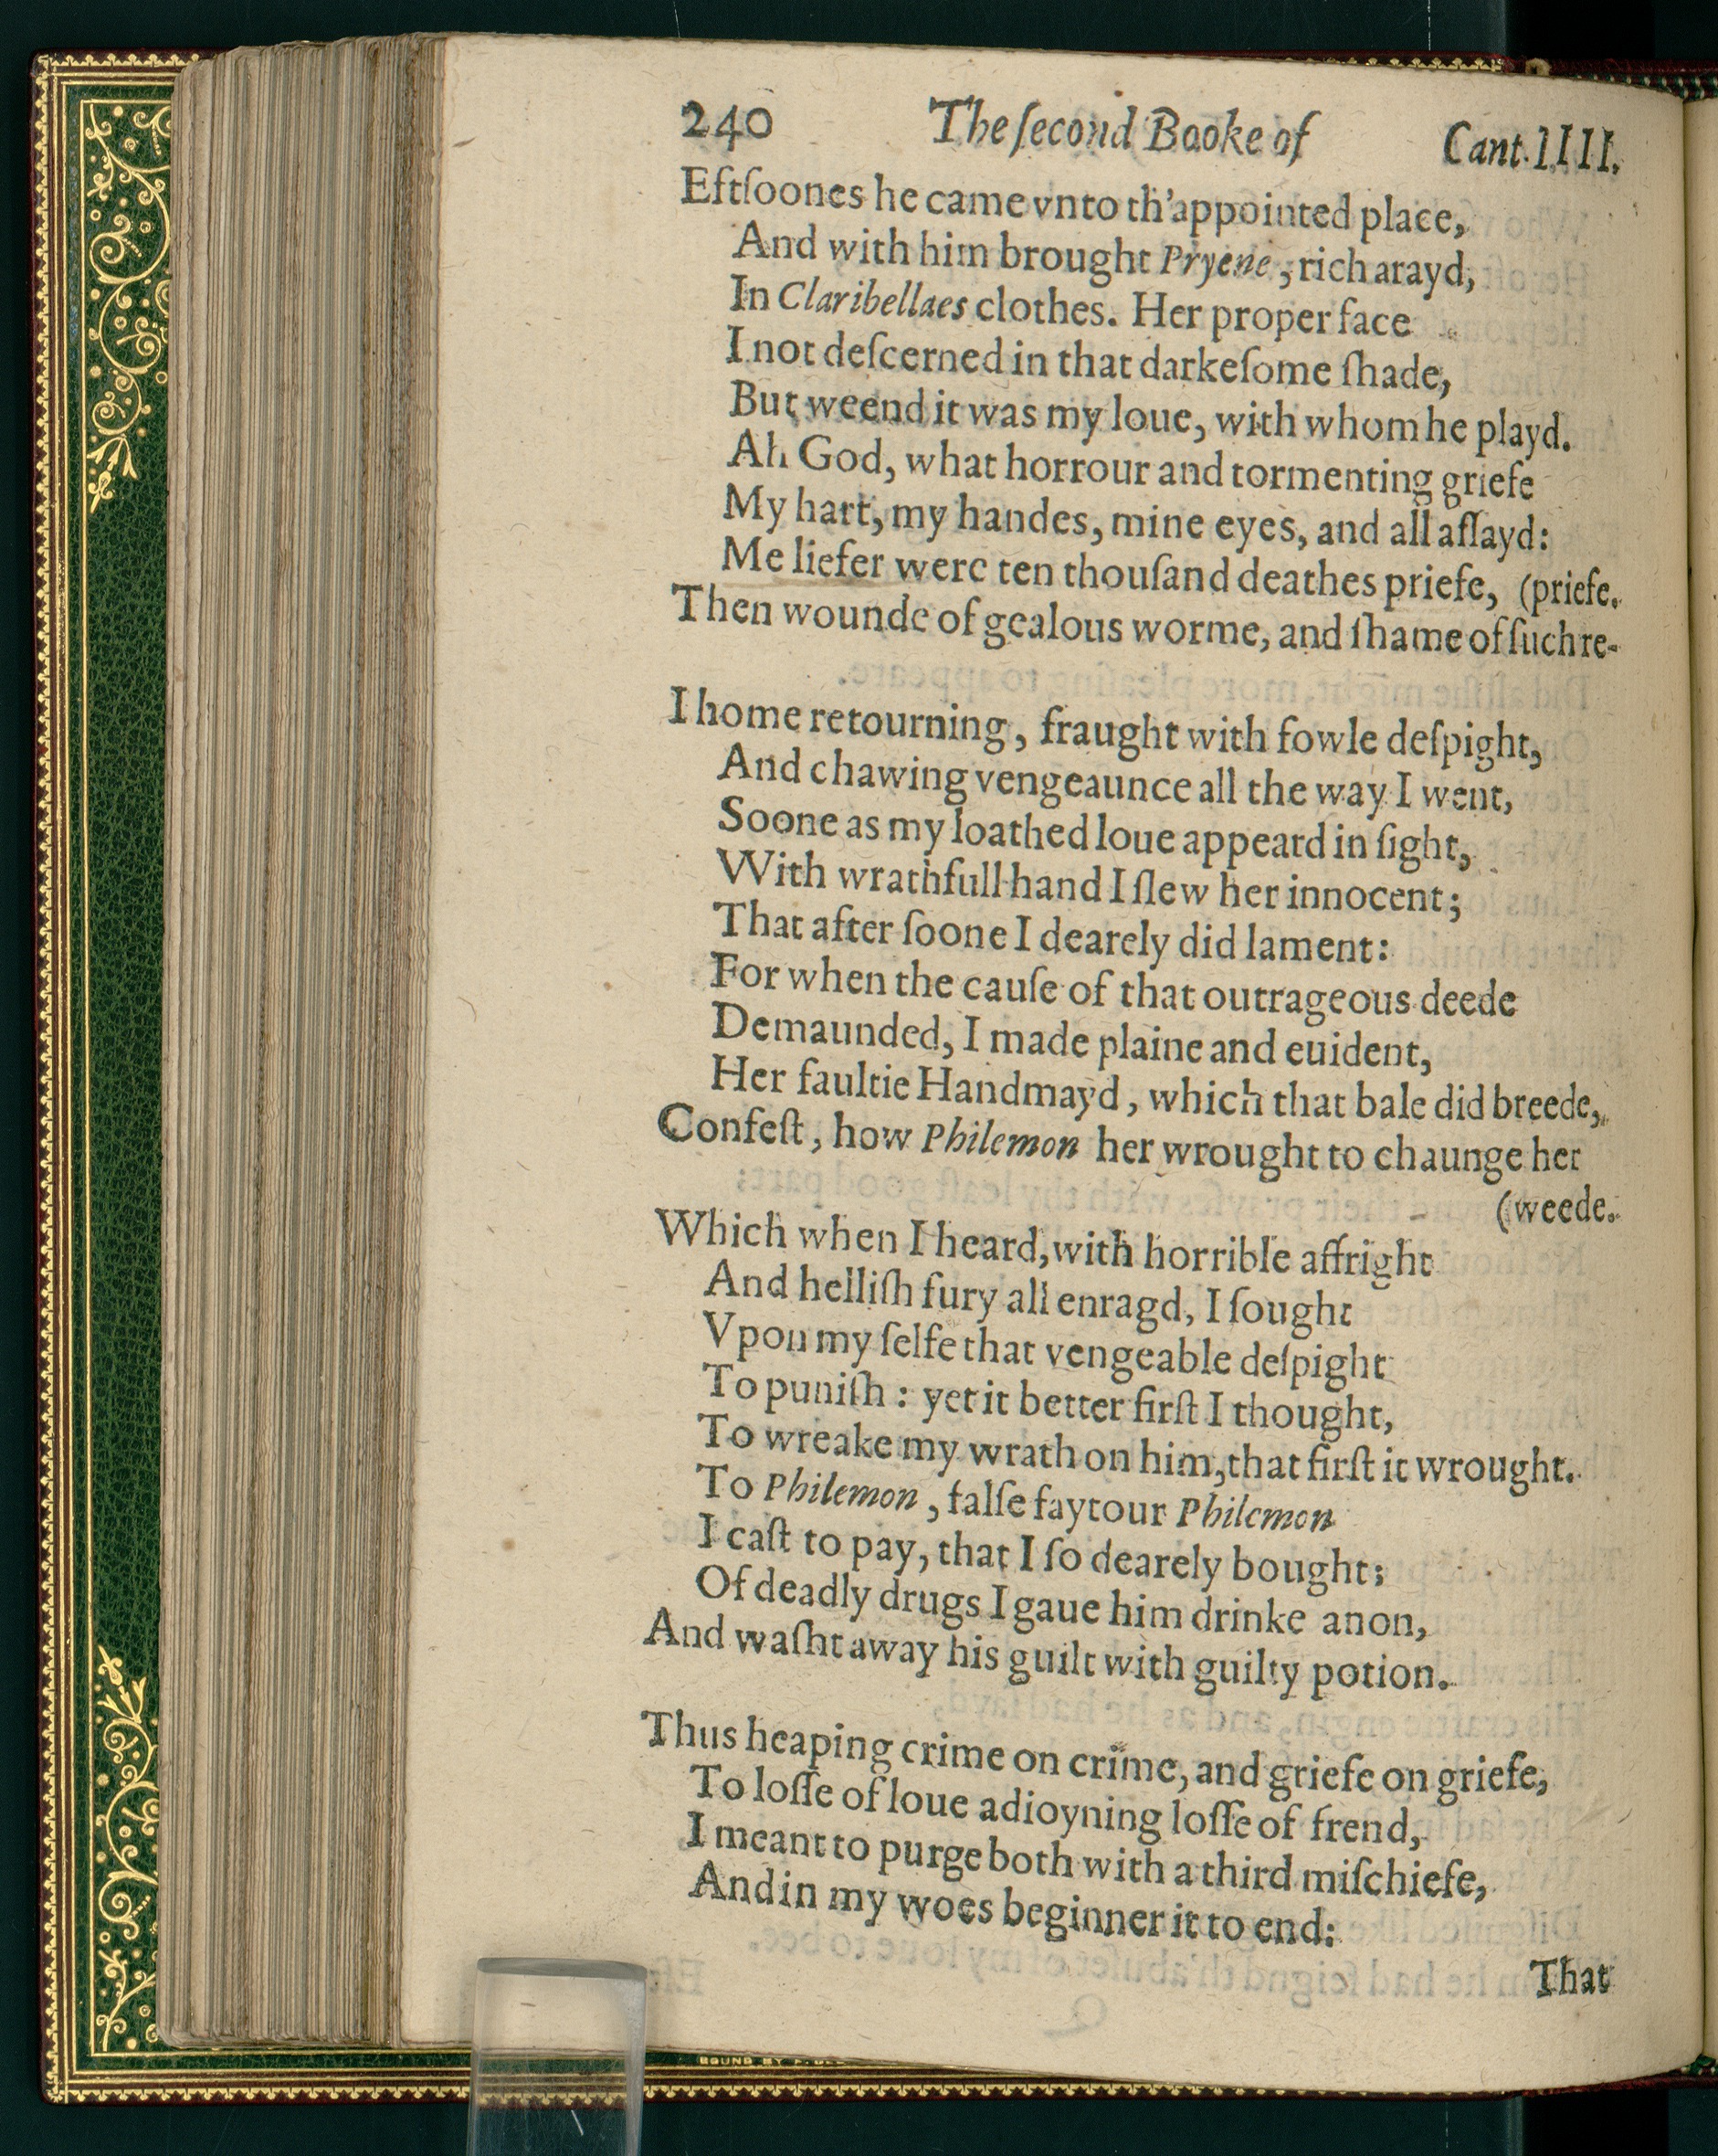 240 The ſecond Booke of Cant. IIII.
Eftſoones he came vnto th'appointed place,
And with him brought Pryene, rich arayd,
In Claribellaes clothes. Her proper face
I not deſcerned in that darkeſome ſhade,
But weend it was my loue, with whom he playd.
Ah God, what horrour and tormenting griefe
My hart, my handes, mine eyes, and all aſſayd:
Me liefer were ten thouſand deathes priefe, (priefe.
Then wounde of gealous worme, and ſhame of ſuch re-
I home retourning, fraught with fowle deſpight,
And chawing vengeaunce all the way I went,
Soone as my loathed loue appeard in ſight,
With wrathfull hand I ſlew her innocent;
That after ſoone I dearely did lament:
For when the cauſe of that outrageous deede
Demaunded, I made plaine and euident,
Her faultie Handmayd, which that bale did breede,
Confeſt, how Philemon her wrought to chaunge her
(weede.
Which when I heard, with horrible affright
And helliſh fury all enragd, I ſought
Vpon my ſelfe that vengeable deſpight
To puniſh: yet it better firſt I thought,
To wreake my wrath on him, that firſt it wrought.
To Philemon, falſe faytour Philemon
I caſt to pay, that I ſo dearely bought;
Of deadly drugs I gaue him drinke anon,
And waſht away his guilt with guilty potion.
Thus heaping crime on crime, and griefe on griefe,
To loſſe of loue adioyning loſſe of frend,
I meant to purge both with a third miſchiefe,
And in my woes beginner it to end:
That
BOUND BY